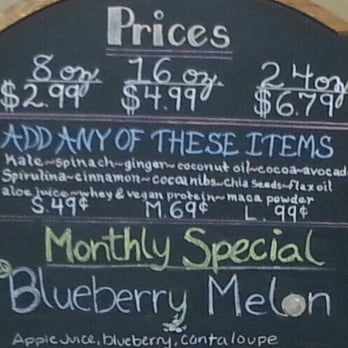 Prices
8 oz 16 oz 24 oz
$2.99 $4.99 $6.79
ADD ANY OF THESE ITEMS
Kale~spinach~ginger~coconut oil~cocoa~avocad
Spirulina~cinnamon~cocoa nibs~chia seeds~flax oil
aloe juice~whey & vegan protein~maca powder
S.49¢ M.69¢ L .99¢
Monthly Special
Blueberry Melon
Apple Juice, blueberry, cantaloupe